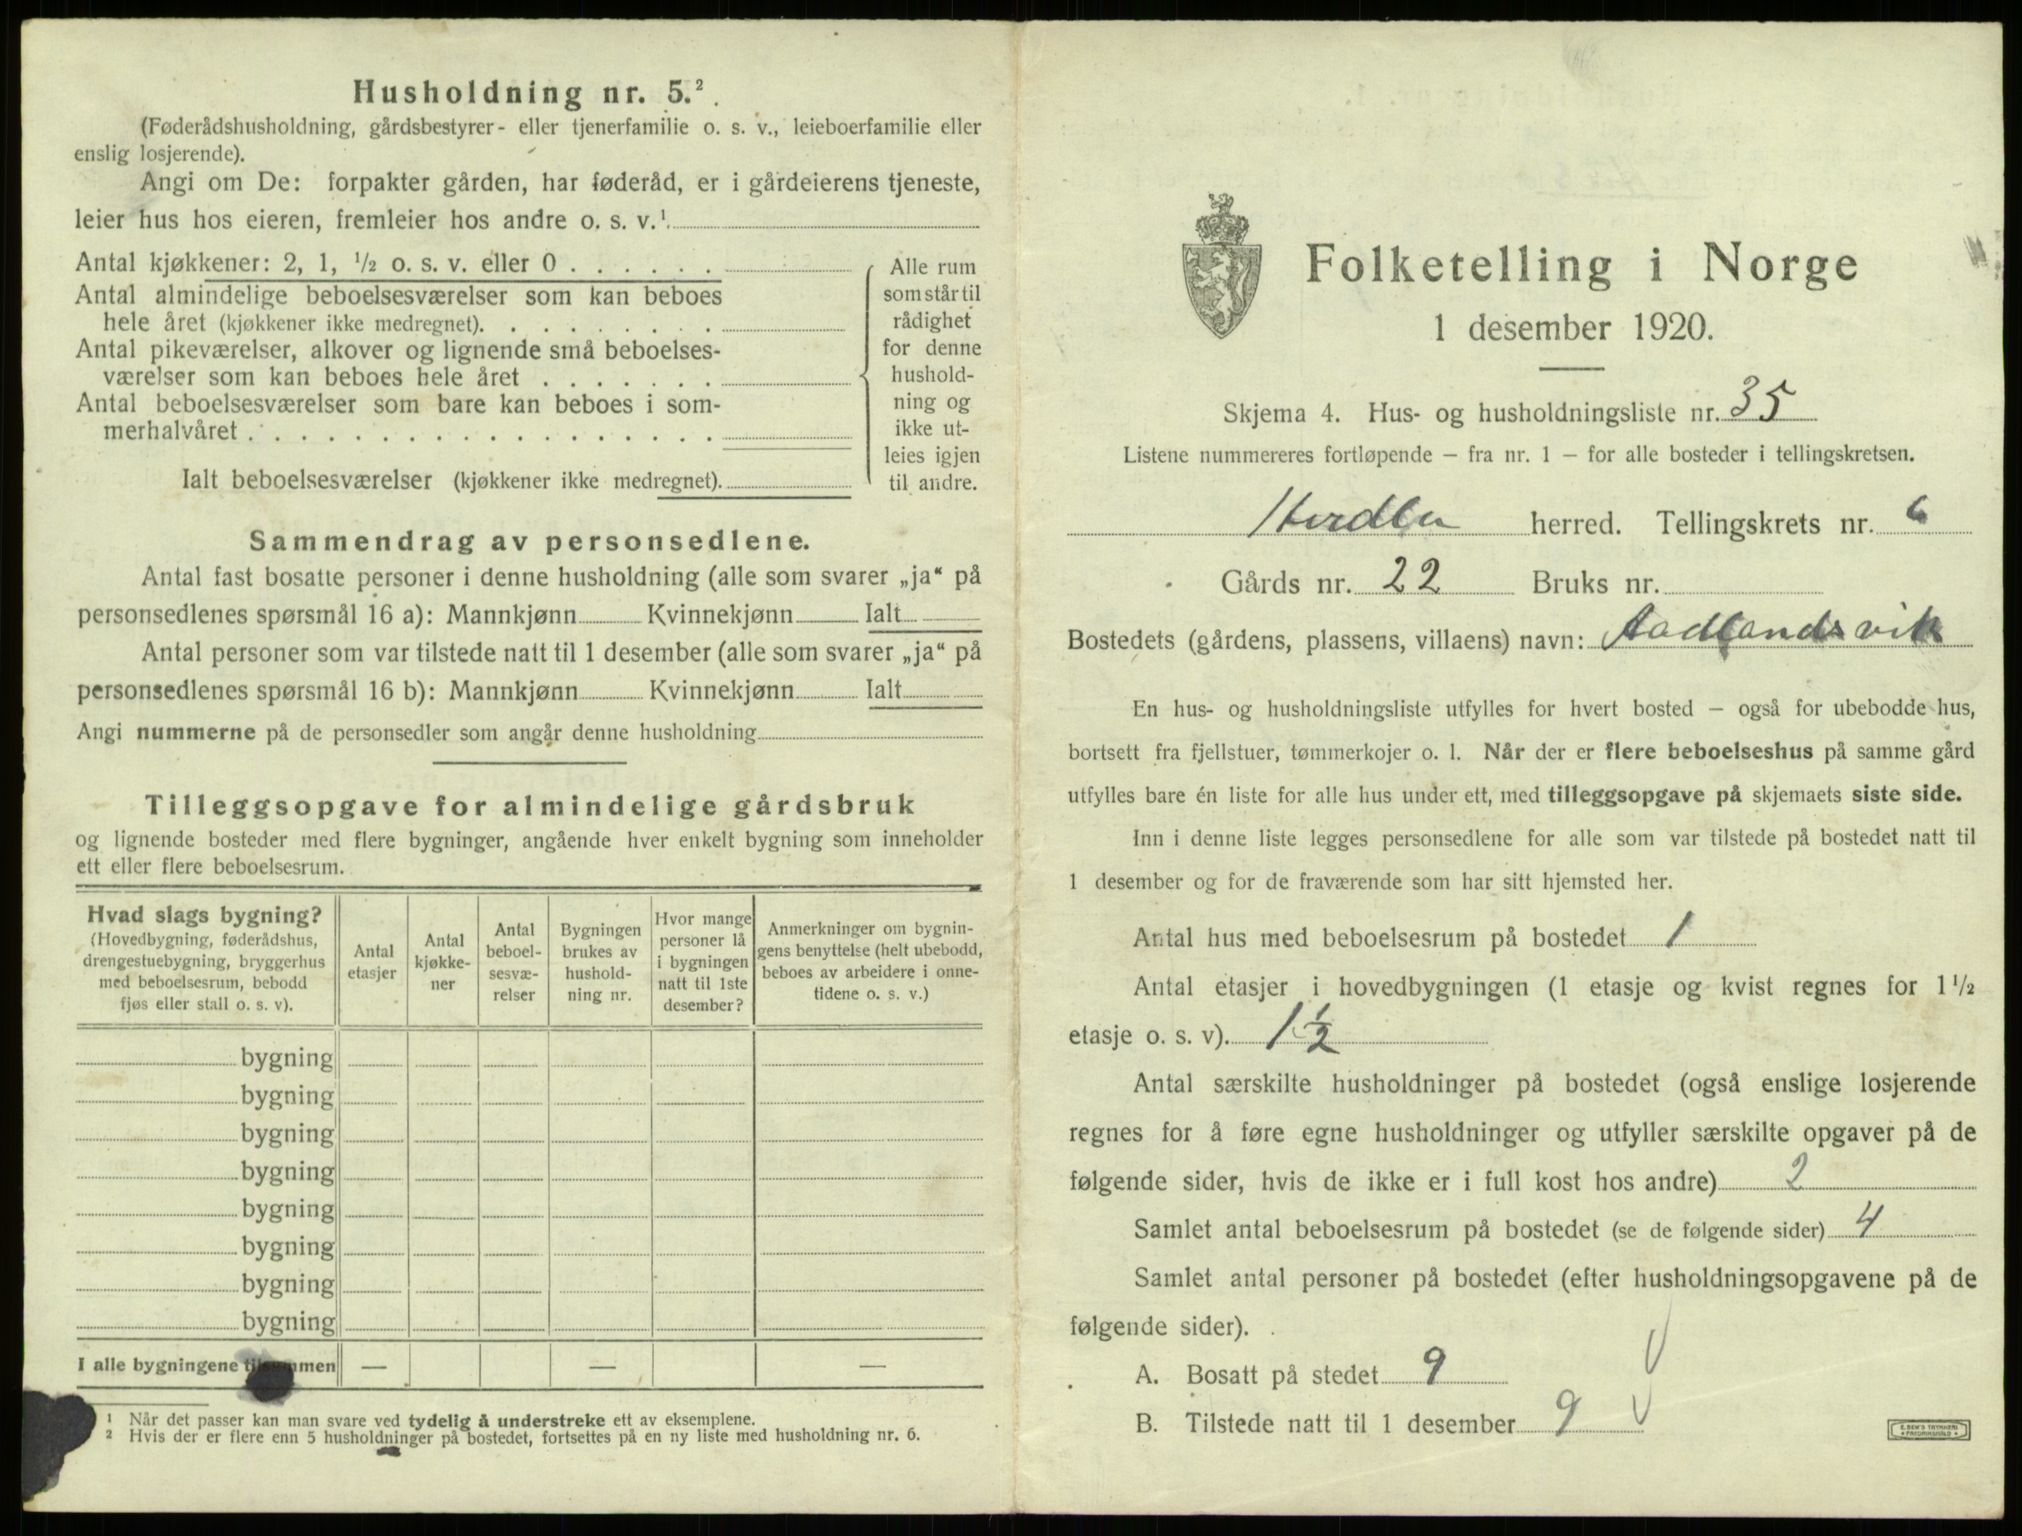 Husholdning nr. 5.²
(Føderådshusholdning, gårdsbestyrer- eller tjenerfamilie o. s. v., leieboerfamilie eller
enslig losjerende).
Angi om De: forpakter gården, har føderåd, er i gårdeierens tjeneste,
leier hus hos eieren, fremleier hos andre o. s. v.¹
Antal kjøkkener: 2, 1, ½ o. s. v. eller 0
Antal almindelige beboelsesværelser som kan beboes
hele året (kjøkkener ikke medregnet).
Antal pikeværelser, alkover og lignende små beboelses-
værelser som kan beboes hele året
Antal beboelsesværelser som bare kan beboes i som-
merhalvåret
Ialt beboelsesværelser (kjøkkener ikke medregnet).
Alle rum
som står til
rådighet
for denne
hushold-
ning og
ikke ut-
leies igjen
til andre.
Sammendrag av personsedlene.
Antal fast bosatte personer i denne husholdning (alle som svarer „ja“ på
personsedlenes spørsmål 16 a): Mannkjønn Kvinnekjønn Ialt
Antal personer som var tilstede natt til 1 desember (alle som svarer „ja“ på
personsedlenes spørsmål 16 b): Mannkjønn Kvinnekjønn Ialt
Angi nummerne på de personsedler som angår denne husholdning
Tilleggsopgave for almindelige gårdsbruk
og lignende bosteder med flere bygninger, angående hver enkelt bygning som inneholder
ett eller flere beboelsesrum.
Hvad slags bygning?
(Hovedbygning, føderådshus,
drengestuebygning, bryggerhus
med beboelsesrum, bebodd
fjøs eller stall o. s. v).
Antal
etasjer
Antal
kjøkke-
ner
Antal
beboel-
sesvæ-
relser
Bygningen
brukes av
hushold-
ning nr.
Hvor mange
personer lå
i bygningen
natt til 1ste
desember?
Anmerkninger om bygnin-
gens benyttelse (helt ubebodd,
beboes av arbeidere i onne-
tidene o. s. v.)
bygning
bygning
bygning
bygning
bygning
bygning
bygning
bygning
I alle bygningene tilsammen — — —
¹ Når det passer kan man svare ved tydelig å understreke ett av eksemplene.
² Hvis der er flere enn 5 husholdninger på bostedet, fortsettes på en ny liste med husholdning nr. 6.
Folketelling i Norge
1 desember 1920.
Skjema 4. Hus- og husholdningsliste nr. 35
Listene nummereres fortløpende – fra nr. 1 – for alle bosteder i tellingskretsen.
Herdla herred. Tellingskrets nr. 6
Gårds nr. 22 Bruks nr.
Bostedets (gårdens, plassens, villaens) navn: Aadlandsvik
En hus- og husholdningsliste utfylles for hvert bosted – også for ubebodde hus,
bortsett fra fjellstuer, tømmerkojer o. l. Når der er flere beboelseshus på samme gård
utfylles bare én liste for alle hus under ett, med tilleggsopgave på skjemaets siste side.
Inn i denne liste legges personsedlene for alle som var tilstede på bostedet natt til
1 desember og for de fraværende som har sitt hjemsted her.
Antal hus med beboelsesrum på bostedet 1
Antal etasjer i hovedbygningen (1 etasje og kvist regnes for 1½
etasje o. s. v). 1½
Antal særskilte husholdninger på bostedet (også enslige losjerende
regnes for å føre egne husholdninger og utfyller særskilte opgaver på de
følgende sider, hvis de ikke er i full kost hos andre) 2
Samlet antal beboelsesrum på bostedet (se de følgende sider) 4
Samlet antal personer på bostedet (efter husholdningsopgavene på de
følgende sider).
A. Bosatt på stedet 9
B. Tilstede natt til 1 desember 9